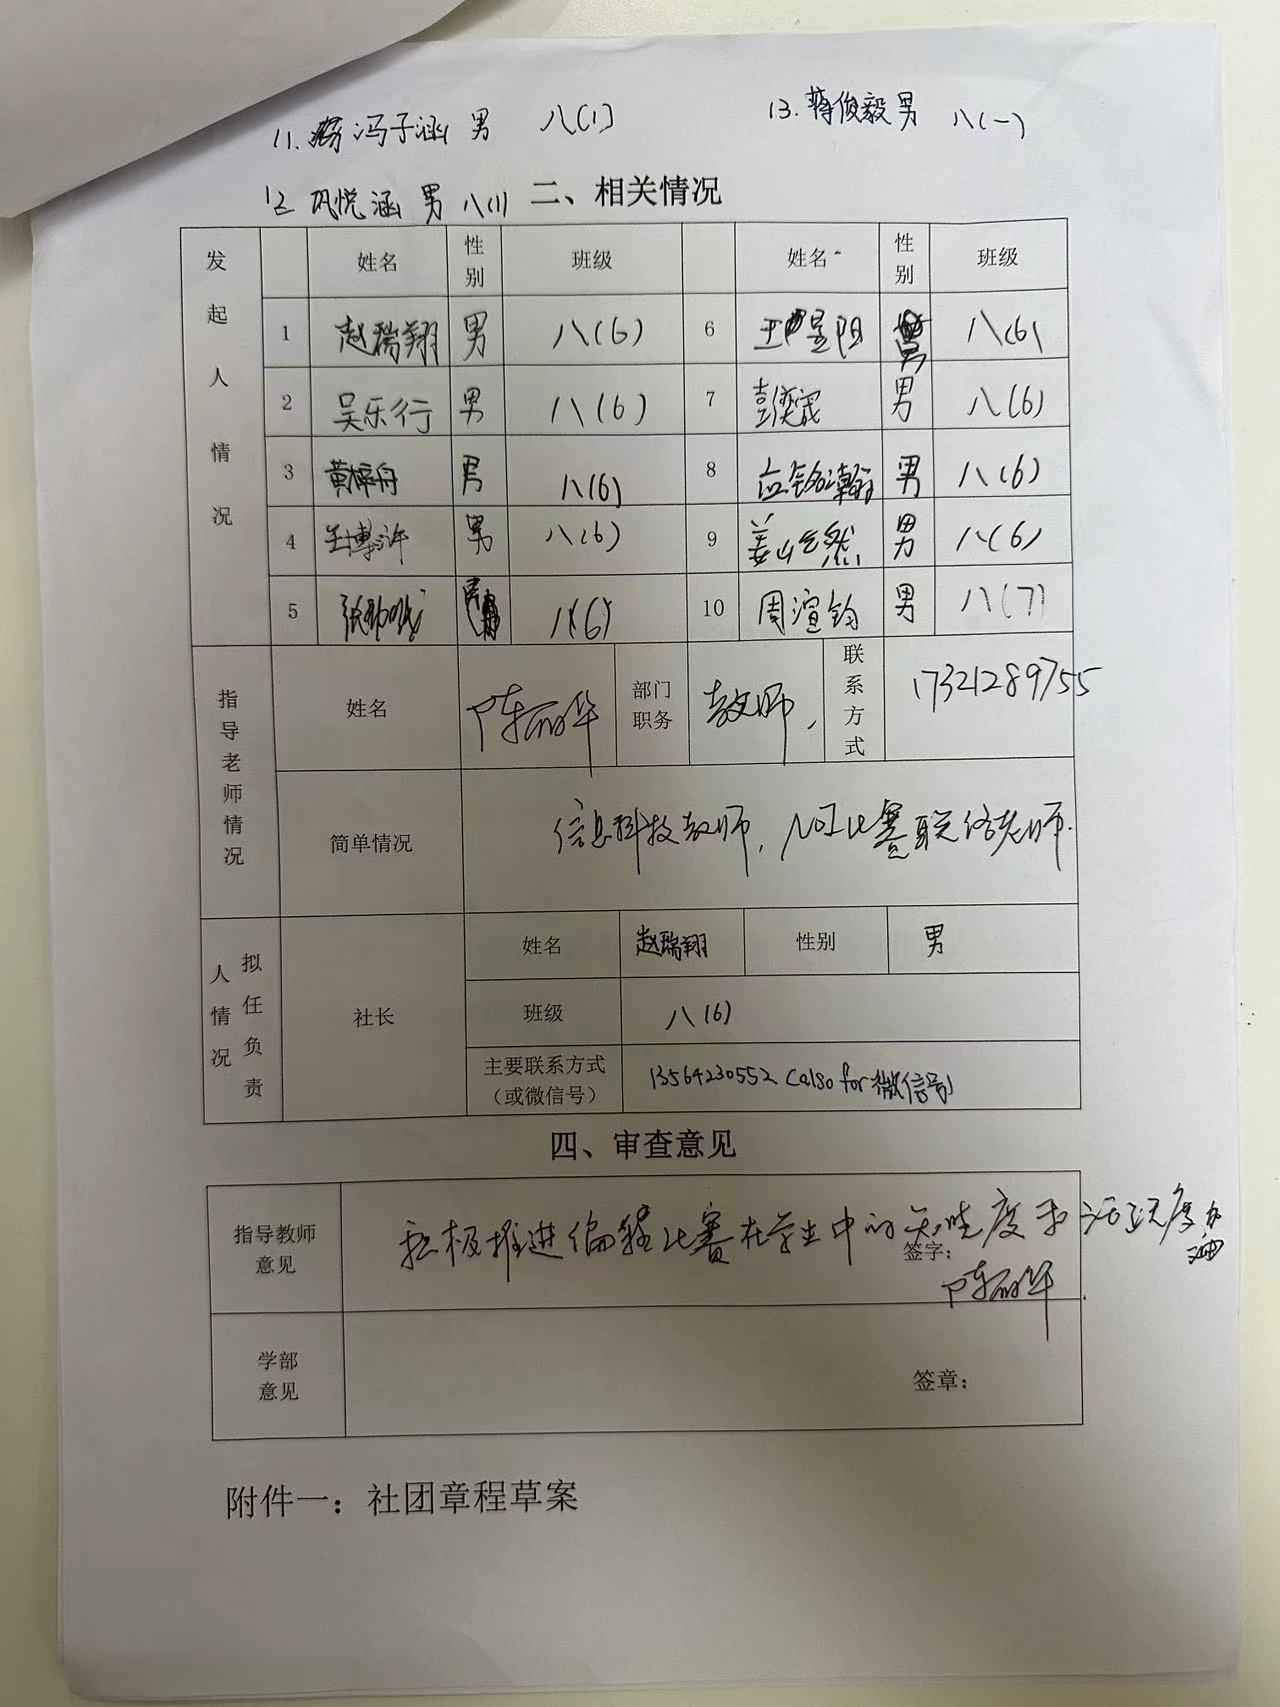 11. 冯子涵 男 八(1)
13. 蒋俊毅 男 八(一)
12 巩悦涵 男 八(1)
二、相关情况
发起人情况 姓名 性别 班级 姓名 性别 班级
1 赵瑞翔 男 八(6) 6 王星阳 男 八(6)
2 吴乐行 男 八(6) 7 彭奕宬 男 八(6)
3 黄梓舟 男 八(6) 8 应铭瀚 男 八(6)
4 王博许 男 八(6) 9 姜山 然 男 八(6)
5 张 男 八(6) 10 周渲钧 男 八(7)
指导老师情况 姓名 陈丽华 部门职务 教师, 联系方式 17321289755
简单情况 信息科技教师, NOI比赛联络老师.
拟任负责人情况 社长 姓名 赵瑞翔 性别 男
班级 八(6)
主要联系方式（或微信号） 13564230552 (also for 微信号)
四、审查意见
指导教师意见 积极推进编程比赛在学生中的 度和活跃度
签字：
陈丽华
学部意见 签章：
附件一：社团章程草案